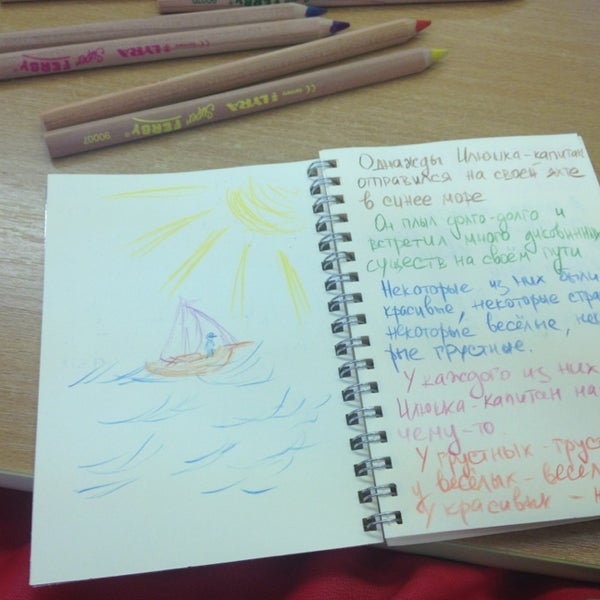 LYRA Super FERBY
90007 Super FERBY LYRA
Однажды Илюшка-капитан
отправился на своей яхте
в синее море
Он плыл долго-долго и
встретил много диковинных
существ на своём пути
Некоторые из них были
красивые, некоторые стра
некоторые весёлые, нек
рые грустные.
У каждого из них
Илюшка-капитан на
чему-то
У грустных - груст
у весёлых - весел
У красивых -